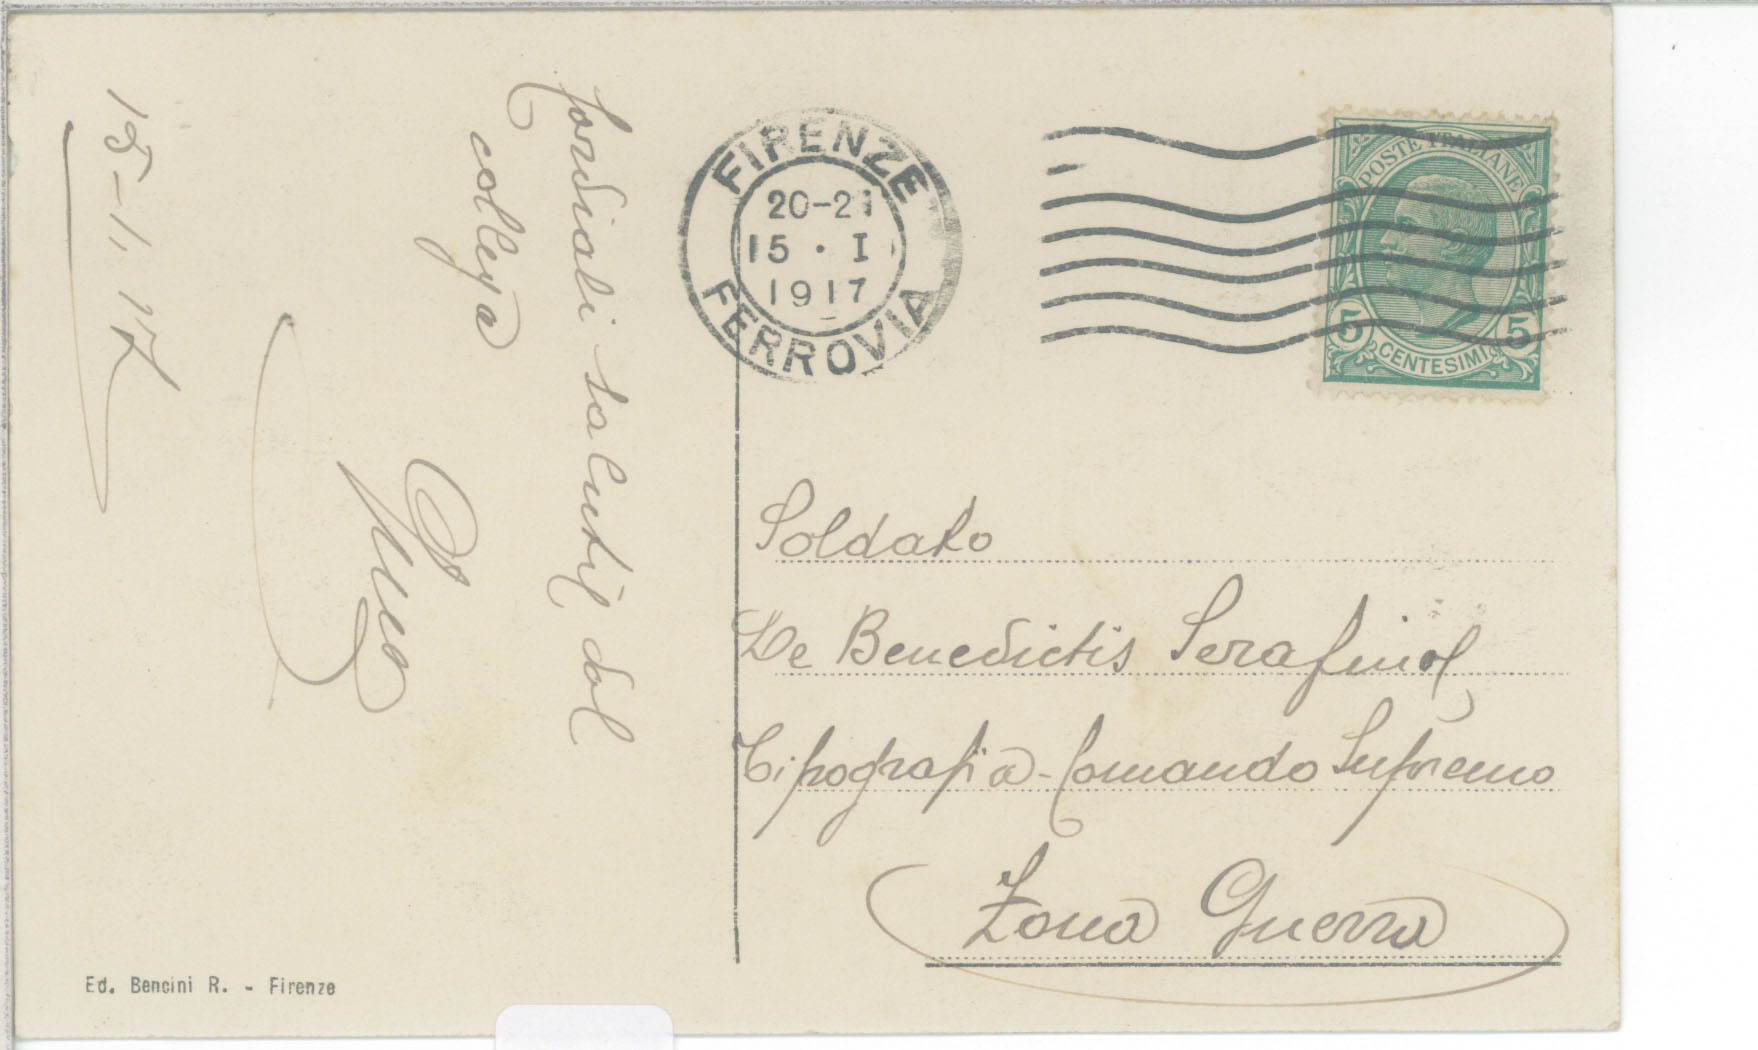 Cordiali saluti dal
collega
15-1.17
FIRENZE
20-21
15 · I
1917
FERROVIA
POSTE ITALIANE
5 5
CENTESIMI
Soldato
De Benedictis Serafino
Tipografia - Comando Supremo
Zona Guerra
Ed. Bencini R. - Firenze